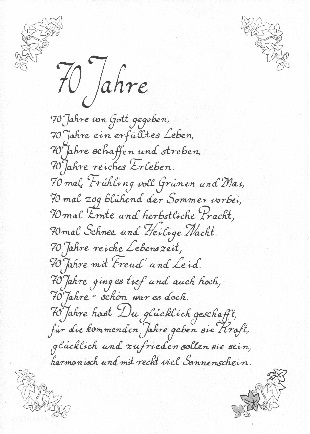 70 Jahre
70 Jahre von Gott gegeben,
70 Jahre ein erfülltes Leben,
70 Jahre schaffen und streben,
70 Jahre reiches Erleben.
70 mal, Frühling voll Grünen und Mai,
70 mal zog blühend der Sommer vorbei,
70 mal Ernte und herbstliche Pracht,
70 mal Schnee und Heilige Nacht.
70 Jahre reiche Lebenszeit,
70 Jahre mit Freud' und Leid.
70 Jahre ging es tief und auch hoch,
70 Jahre - schön war es doch.
70 Jahre hast Du glücklich geschafft,
für die kommenden Jahre geben sie Kraft,
glücklich und zufrieden sollen sie sein,
harmonisch und mit recht viel Sonnenschein.